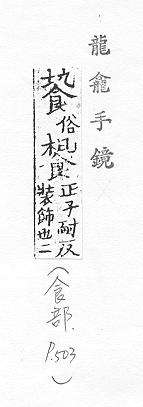 龍龕手鏡
俗
正子耐反
裝飾也二
(食部. P.503)